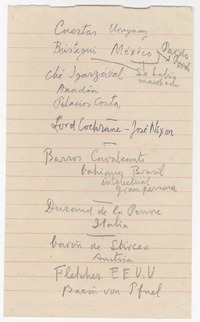 Cuestas Uruguay
Béistegui México
se había
marchado
Ché Ygarzábal
Anadón
Palacios Costa
Lord Cochrane - José Nixon
Barros Cavalcanti
bahiano Brasil
intelectual
gran persona
Durand de la Penne
Italia
barón de Stircea
Austria
Fletcher EE.U.U
barón von Pfuel